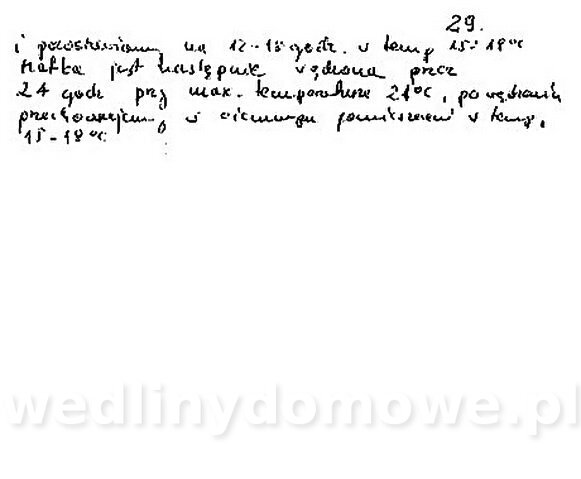 29.
i pozostawiamy na 12-15 godz. w temp 15-18°C
Kiełbasa jest następnie wędzona przez
24 godz przy max. temperaturze 21°C, po wędzeniu
przechowujemy w ciemnym pomieszczeniu w temp.
15-18°C
wedlinydomowe.pl